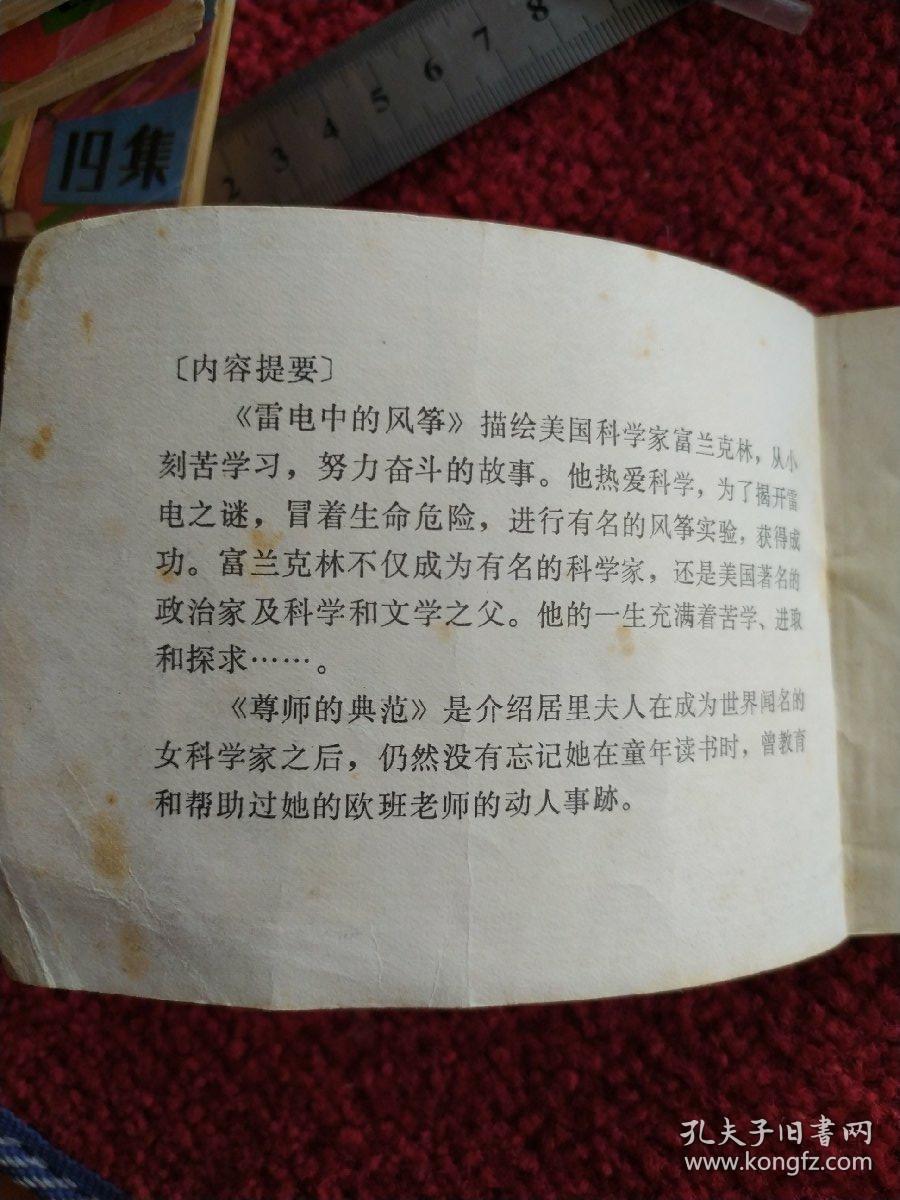 19集
2 3 4 5 6 7 8
〔内容提要〕
《雷电中的风筝》描绘美国科学家富兰克林，从小
刻苦学习，努力奋斗的故事。他热爱科学，为了揭开雷
电之谜，冒着生命危险，进行有名的风筝实验，获得成
功。富兰克林不仅成为有名的科学家，还是美国著名的
政治家及科学和文学之父。他的一生充满着苦学、进取
和探求……。
《尊师的典范》是介绍居里夫人在成为世界闻名的
女科学家之后，仍然没有忘记她在童年读书时，曾教育
和帮助过她的欧班老师的动人事跡。
孔夫子旧书网
www.kongfz.com